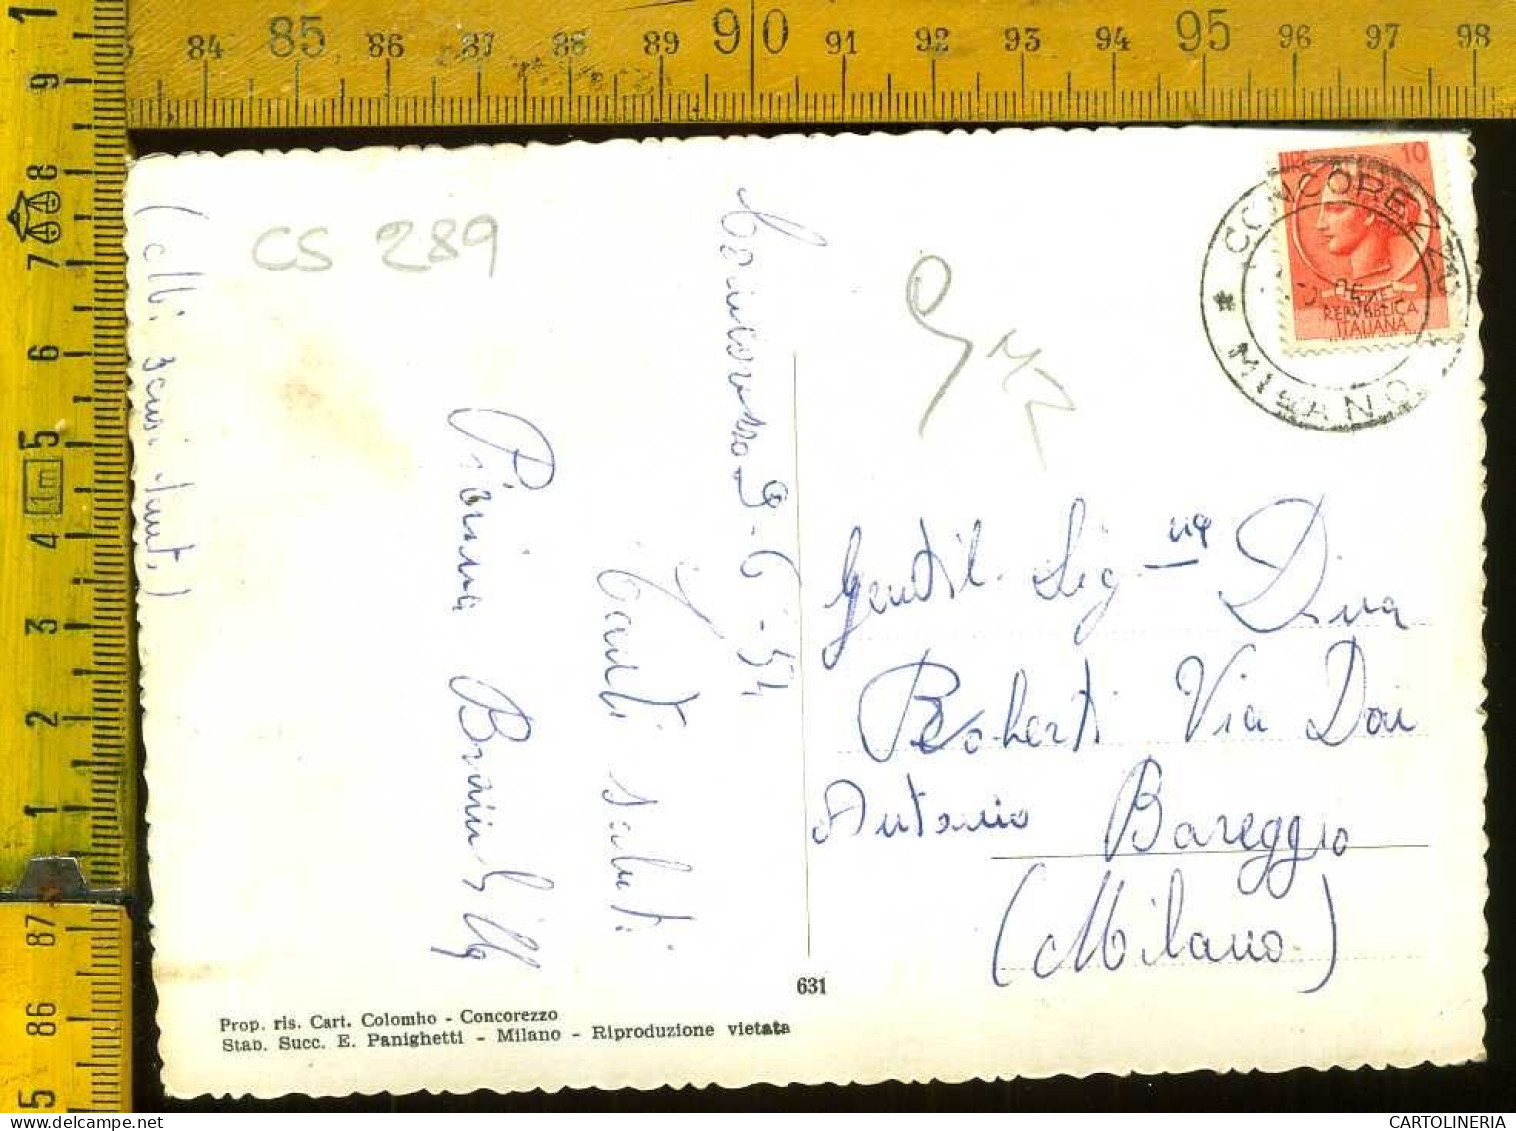 83 84 85 86 87 88 89 90 91 92 93 94 95 96 97 98
1 9 8 7 6 5 1m 4 3 2 1
87 86 5
CS 289
LIRE 10
REPUBBLICA
ITALIANA
* CONCOREZZO *
MILANO
9-6-54
Tanti saluti
Pierina
Gentil. Sig.na Dina
Roberti Via Don
Antonio Bareggio
(Milano)
631
Prop. ris. Cart. Colombo - Concorezzo
Stab. Succ. E. Panighetti - Milano - Riproduzione vietata
CARTOLINERIA